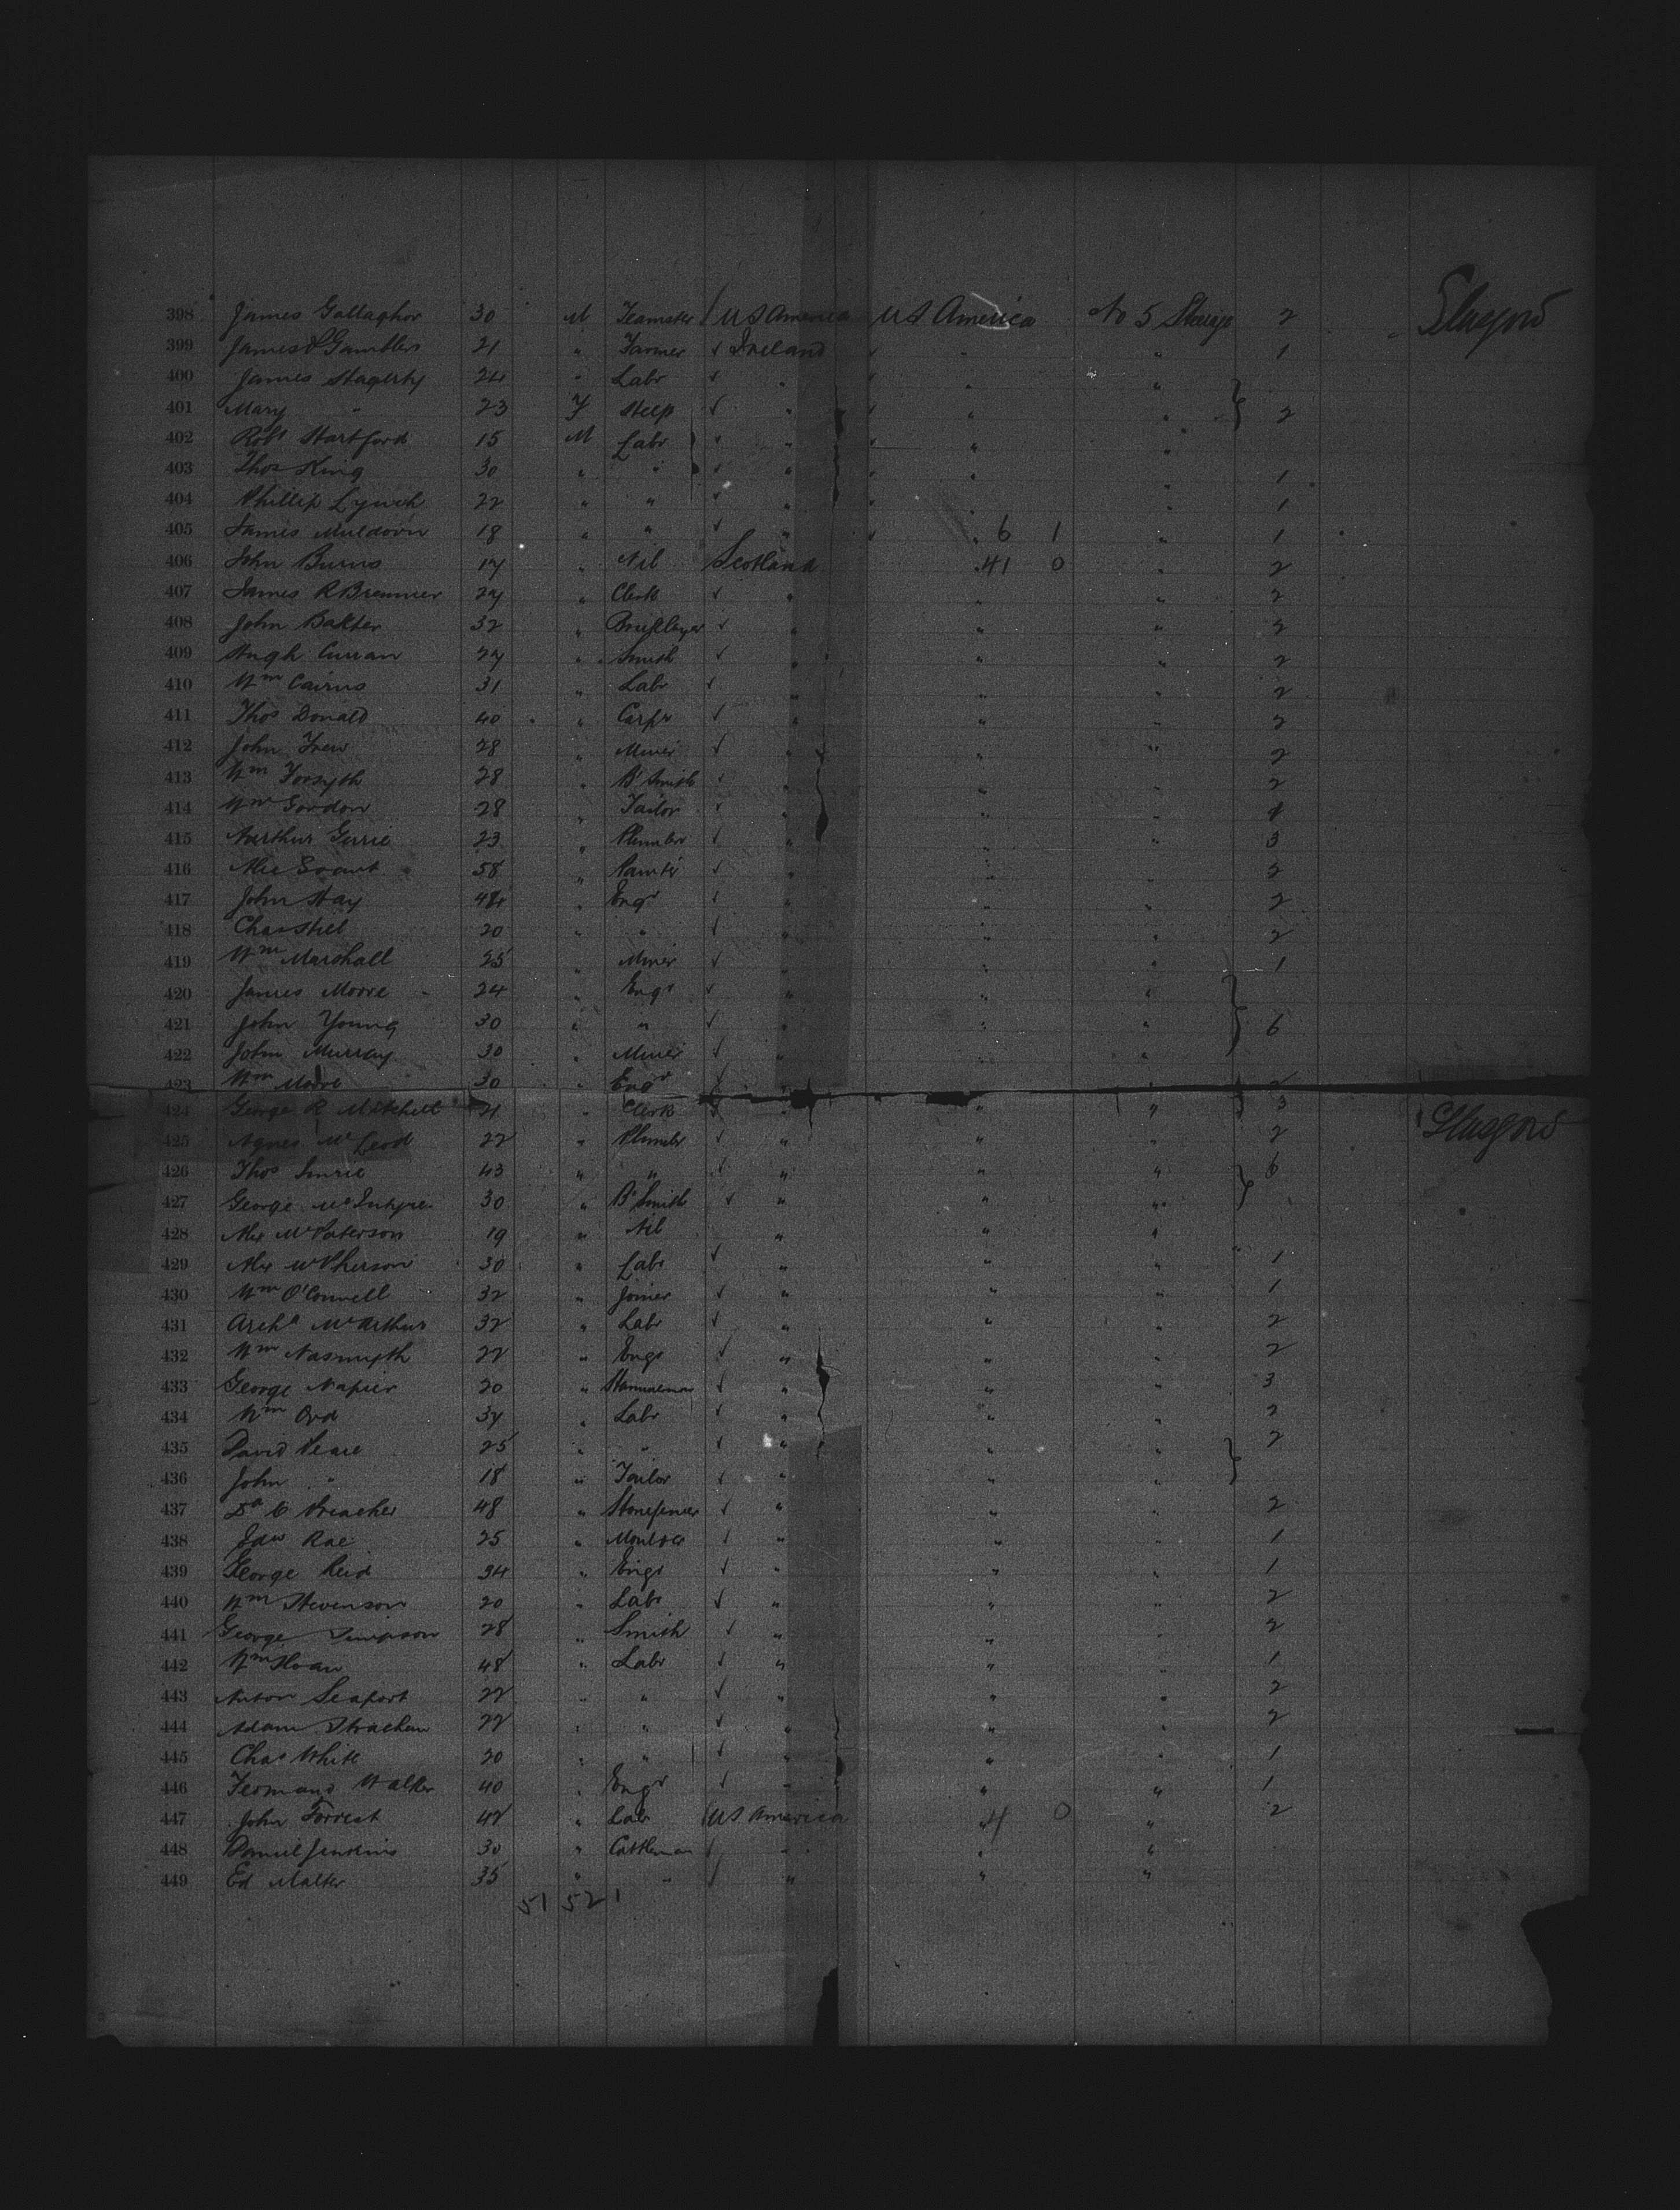 398 James Gallaghor 30 M Teamster / U S America U S America No 5 Steerge 2 Glasgow
399 James Gambler 21 " Farmer ✓ Ireland ✓ " " 1
400 James Hagerty 24 " Labr ✓ " ✓ " "
401 Mary " 23 F ✓ " ✓ " " 2
402 Robt Hartford 15 M Labr ✓ " ✓ " "
403 Thos King 30 " " ✓ " ✓ " " 1
404 Phillip Lynch 22 " " ✓ " ✓ " " 1
405 James Muldoon 18 " " ✓ " ✓ " 6 1 " 1
406 John Burns 17 " Nil Scotland " 41 0 " 2
407 James R Bremner 27 " Clerk ✓ " " " 2
408 John Baxter 32 " Bricklayer ✓ " " " 2
409 Hugh Curran 27 " Smith ✓ " " " 2
410 Wm Cairns 31 " Labr ✓ " " " 2
411 Thos Donald 40 " Carpr ✓ " " " 2
412 John Frew 28 " Miner ✓ " " " 2
413 Wm Forsyth 28 " Bl Smith ✓ " " " 2
414 Wm Gordon 28 " Tailor ✓ " " " 1
415 Aarthur Gurrie 23 " Plumber ✓ " " " 3
416 Alec Grant 58 " Painter ✓ " " " 2
417 John Hay 48 " Engr ✓ " " " 2
418 Chas Hill 20 " " ✓ " " " 2
419 Wm Marshall 25 " Miner ✓ " " " 1
420 James Moore 24 " Engr ✓ " " "
421 John Young 30 " " ✓ " " " 6
422 John Murray 30 " Miner ✓ " " "
423 Wm Moore 30 " Engr ✓ " " " 2
424 George R Mitchell 21 " Clerk ✓ " " " 3
425 Agnes McLeod 22 " Plumber ✓ " " " 2 Glasgow
426 Thos Imrie 43 " " ✓ " " " 6
427 George McIntyre 30 " Bl Smith ✓ " " "
428 Alex McPaterson 19 " Nil " " "
429 Alex McPherson 30 " Labr ✓ " " " 1
430 Wm O'Connell 32 " Joiner ✓ " " " 1
431 Archd McArthur 32 " Labr ✓ " " " 2
432 Wm Nasmyth 22 " Engr ✓ " " " 2
433 George Napier 20 " Hammerman ✓ " " " 3
434 Wm Ord 37 " Labr ✓ " " " 2
435 David 25 " " " " " 2
436 John " 18 " Tailor ✓ " " "
437 48 " ✓ " " " 2
438 Edw Rae 25 " Moulder ✓ " " " 1
439 George Reid 34 " Engr ✓ " " " 1
440 Wm Stevenson 20 " Labr ✓ " " " 2
441 George Simpson 28 " Smith ✓ " " " 2
442 Wm Sloan 48 " Labr ✓ " " " 1
443 Anton Seaport 22 " " ✓ " " " 2
444 Adam Strachan 22 " " ✓ " " " 2
445 Chas White 20 " " ✓ " " " 1
446 Walker 40 " Engr ✓ " " " 1
447 John Forrest 42 " Labr / U S America " 4 0 " 2
448 Daniel Jenkins 30 " Cattleman / " " "
449 Ed Malter 35 " " / " " "
51 52 1